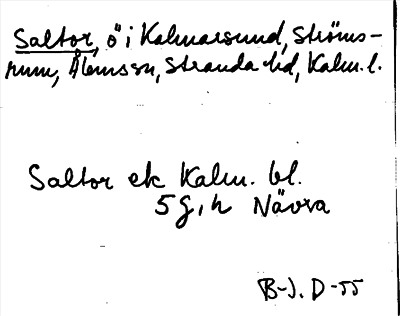 Saltor, ö i Kalmarsund, Ströms-
rum, Ålems sn, Stranda hd, Kalm. l.
Saltor ek Kalm. bl.
5 g, h Nävra
B-J. D-55